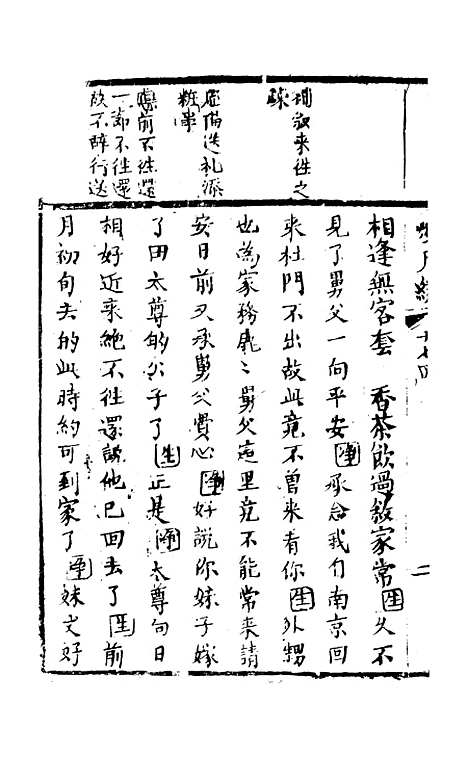 敘來往之
疎
備送礼添
粧事
前不往還
一節不往還
故不辭行送
月緣
二
相逢無客套　香茶飲過敘家常生久不
見了舅父一向平安净承念我自南京回
來杜門不出故此竟不曾來看你生外甥
也為家務〻舅父這里竟不能常來請
安日前又承舅父費心净好說你妹子嫁
了田太尊的公子了生正是净太尊旬日
相好近來絕不往還說他已回去了生前
月初旬去的此時約可到家了净妹丈好